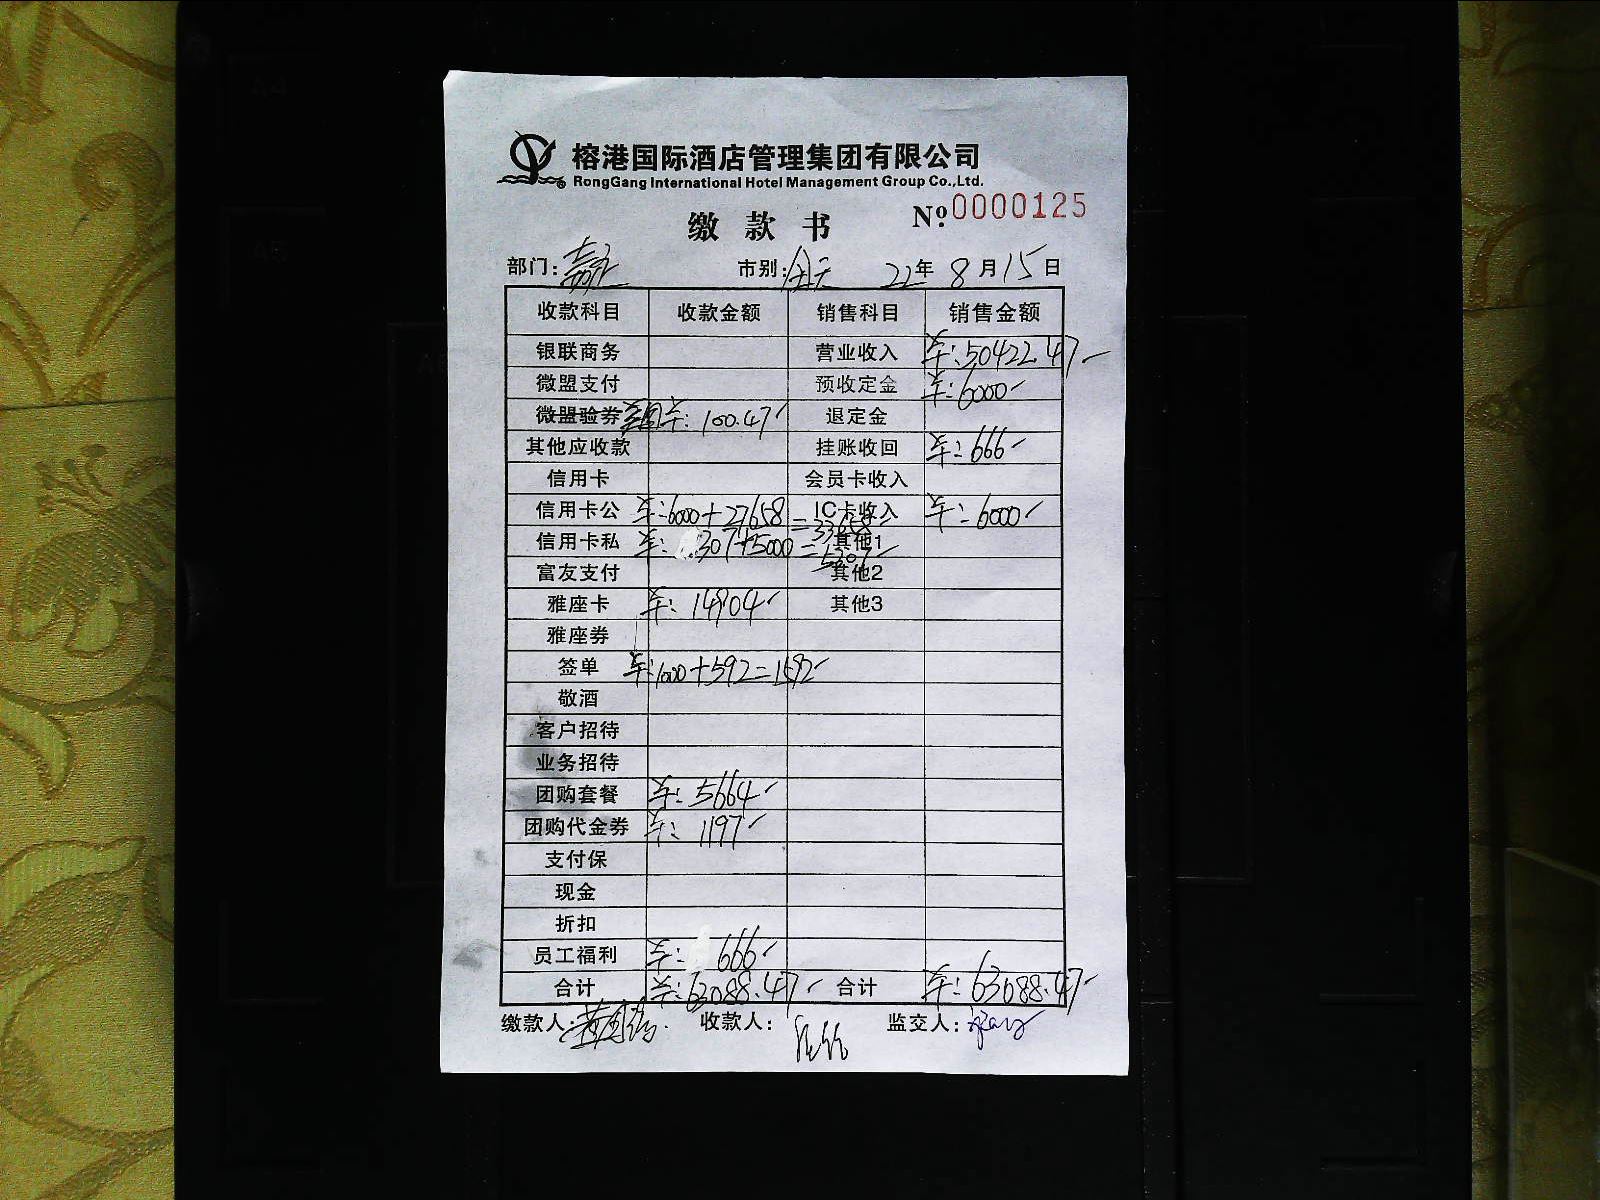 榕港国际酒店管理集团有限公司
RongGang International Hotel Management Group Co.,Ltd.
缴款书 №0000125
部门: 市别:全天 22年8月15日
收款科目 收款金额 销售科目 销售金额
银联商务 营业收入 卡:50422.47
微盟支付 预收定金 卡:6000
微盟验券 卡:100.47 退定金
其他应收款 挂账收回 卡:666
信用卡 会员卡收入
信用卡公 卡:6000+27658=33658 IC卡收入 卡:6000
信用卡私 卡:307+5000=5307 其他1
富友支付 其他2
雅座卡 卡:14904 其他3
雅座券
签单 卡:1000+592=1592
敬酒
客户招待
业务招待
团购套餐 卡:5664
团购代金券 卡:1197
支付保
现金
折扣
员工福利 卡:666
合计 卡:63088.47 合计 卡:63088.47
缴款人: 收款人: 监交人: